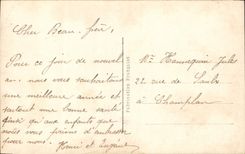 Cher Beau-frère,
Pour ce jour de nouvel
an. nous vous souhaitons
une meilleure année et
surtout une bonne santé
ainsi qu'aux enfants que
nous vous prions d'embrasser
pour nous.
Henri et
Mr Hannequin Jules
22 rue de
à Champlan